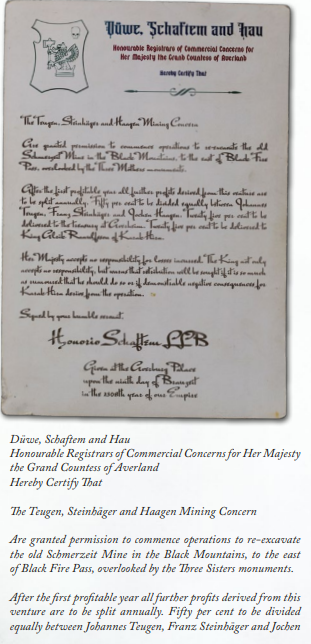 Düwe, Schaftem and Hau
Honourable Registrars of Commercial Concerns for
Her Majesty the Grand Countess of Averland
Hereby Certify That
The Teugen, Steinhäger and Haagen Mining Concern
Are granted permission to commence operations to re-excavate the old
Schmerzeit Mine in the Black Mountains, to the east of Black Fire
Pass, overlooked by the Three Mothers monuments.
After the first profitable year all further profits derived from this venture are
to be split annually. Fifty per cent to be divided equally between Johannes
Teugen, Franz Steinhäger and Jochen Haagen. Twenty five per cent to be
delivered to the treasury at Averheim. Twenty five per cent to be delivered to
King Alrik Ranulfsson of Karak Hirn.
Her Majesty accepts no responsibility for losses incurred. The King not only
accepts no responsibility, but warns that retribution will be sought if it is so much
as rumoured that he should do so or if demonstrable negative consequences for
Karak Hirn derive from the operation.
Signed by your humble servant.
Honorio Schaftem LLB
Given at the Averburg Palace
upon the ninth day of Brauzeit
in the year of our Empire
Düwe, Schaftem and Hau
Honourable Registrars of Commercial Concerns for Her Majesty
the Grand Countess of Averland
Hereby Certify That
The Teugen, Steinhäger and Haagen Mining Concern
Are granted permission to commence operations to re-excavate
the old Schmerzeit Mine in the Black Mountains, to the east
of Black Fire Pass, overlooked by the Three Sisters monuments.
After the first profitable year all further profits derived from this
venture are to be split annually. Fifty per cent to be divided
equally between Johannes Teugen, Franz Steinhäger and Jochen